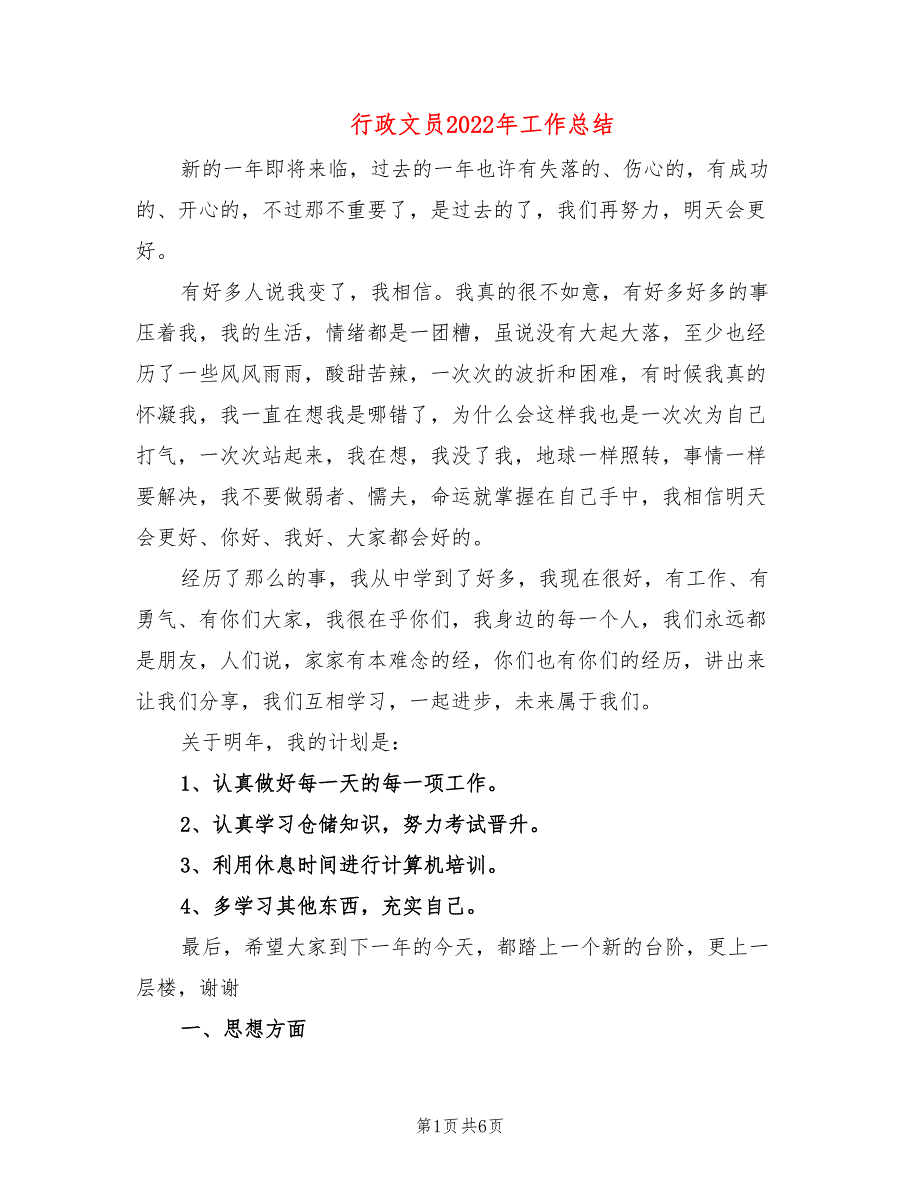 行政文员2022年工作总结
新的一年即将来临，过去的一年也许有失落的、伤心的，有成功
的、开心的，不过那不重要了，是过去的了，我们再努力，明天会更
好。
有好多人说我变了，我相信。我真的很不如意，有好多好多的事
压着我，我的生活，情绪都是一团糟，虽说没有大起大落，至少也经
历了一些风风雨雨，酸甜苦辣，一次次的波折和困难，有时候我真的
怀凝我，我一直在想我是哪错了，为什么会这样我也是一次次为自己
打气，一次次站起来，我在想，我没了我，地球一样照转，事情一样
要解决，我不要做弱者、懦夫，命运就掌握在自己手中，我相信明天
会更好、你好、我好、大家都会好的。
经历了那么的事，我从中学到了好多，我现在很好，有工作、有
勇气、有你们大家，我很在乎你们，我身边的每一个人，我们永远都
是朋友，人们说，家家有本难念的经，你们也有你们的经历，讲出来
让我们分享，我们互相学习，一起进步，未来属于我们。
关于明年，我的计划是：
1、认真做好每一天的每一项工作。
2、认真学习仓储知识，努力考试晋升。
3、利用休息时间进行计算机培训。
4、多学习其他东西，充实自己。
最后，希望大家到下一年的今天，都踏上一个新的台阶，更上一
层楼，谢谢
一、思想方面
第1页共6页